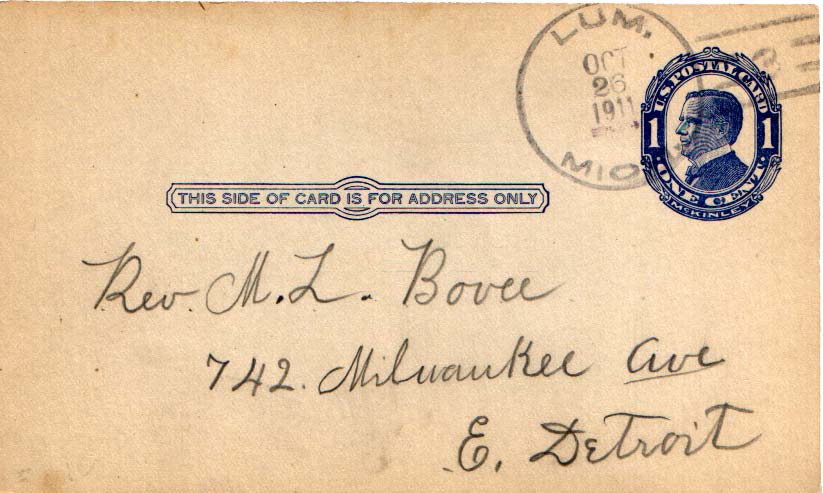 LUM.
OCT
26
1911
MICH
3
U.S. POSTAL CARD
1 1
ONE CENT
McKINLEY
THIS SIDE OF CARD IS FOR ADDRESS ONLY
Rev. M. L. Bovee
742. Milwaukee Ave
E. Detroit